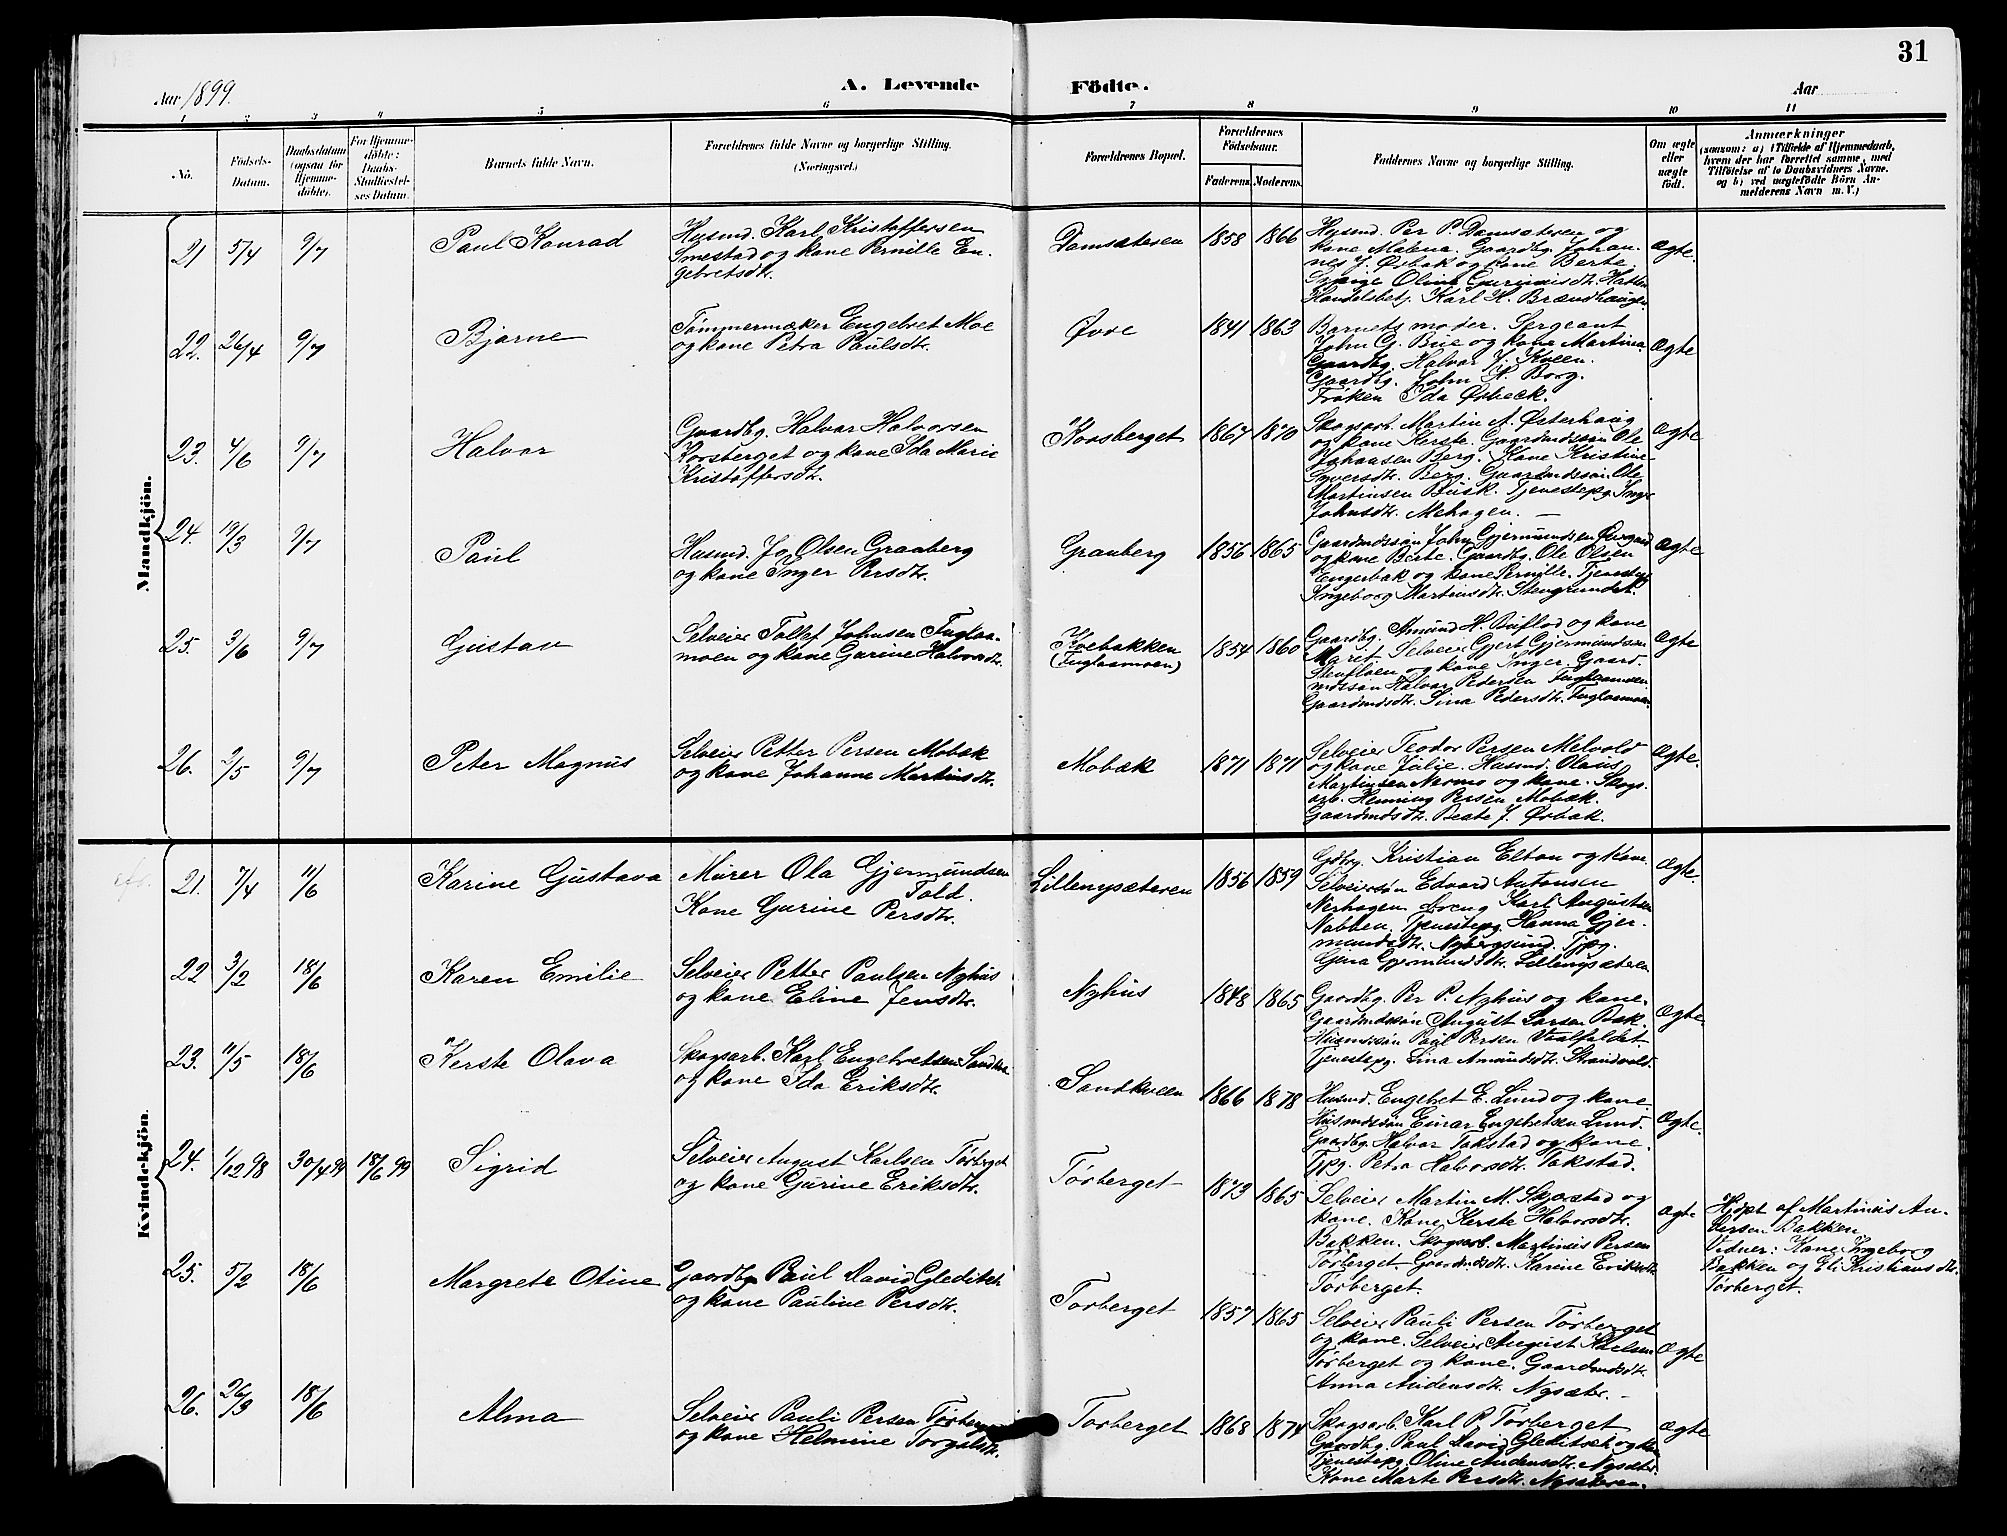 31
Aar 1899.
A. Levende
Födte.
Aar
1 2 3 4 5 6 7 8 9 10 11
No.
Födsels-
Datum.
Daabsdatum
(ogsaa for
Hjemme-
døbte).
For Hjemme-
døbte:
Daabs-
Stadfæstel-
ses Datum.
Barnets fulde Navn.
Forældrenes fulde Navne og borgerlige Stilling.
(Næringsvei.)
Forældrenes Bopæl.
Forældrenes
Födselsaar.
Faderens.
Moderens.
Faddernes Navne og borgerlige Stilling.
Om ægte
eller
uægte
født.
Anmærkninger
(saasom: a) i Tilfælde af Hjemmedaab,
hvem der har forrettet samme, med
Tilföielse af to Daabsvidners Navne,
og b) ved uægtefödte Börn An-
melderens Navn m. V.)
Mandkjön.
21 5/4 9/7
Paul Konrad
Husmd. Karl Kristoffersen
Smestad og kone Pernille En-
gebretsdt.
Damsæteren
1858 1866
Husmd. Per P. Damsæteren og
kone Malena. Gaardbg. Johan-
nes J. Ørbak og kone Berte.
Pige Oline Gurinisdt. Hatten
Handelsbetj. Karl H. Brændhaugen
Ægte.
22. 26/4 9/7
Bjarne
Tømmermæker Engebret Moe
og kone Petra Paulsdt.
Øvre
1841 1863
Barnets moder. Sergeant
John G. Bue og kone Martina
Gaardbg. Halvar J. Kveen.
Gaardbg. John H. Borg.
Frøken Ida Øsbeck.
Ægte
23. 4/6 9/7
Halvar
Gaardbg. Halvar Halvorsen
Korsberget og kone Ida Marie
Kristoffersdt.
Korsberget
1867 1870
Skogsarb. Martin A. Østerhaug
og kone Kerste. Gaardmdssøn Ole
Johansen Berg. Kone Kristine
Syversdt. Berg. Gaardmdssøn Ole
Martinsen Busk. Tjenestepg. Inger
Johnsdt. Mehagen. —
Ægte
24. 19/3 9/7
Paul
Husmd. Jo Olsen Graaberg
og kone Inger Persdt.
Graaberg
1856 1865
Gaardmdssøn John Gjermundsen
og kone Berte. Gaardbg. Ole Olsen
Engerbak og kone Pernille. Tjenestepg
Ingeborg Martinsdt. Stengrundet.
Ægte
25. 3/6 9/7
Gustav
Selveier Tollef Johnsen Fuglaa-
moen og kone Gurine Halvorsdt.
Kvebakken
(Fuglaamoen)
1854 1860
Gaardbg. Amund H. Buflod og kone
Marit. Selveier Gjert Gjermundsen
Stenfloen og kone Inger. Gaard.
mdssøn Halvar Pedersen Fuglaamoen
Gaardmdsdt. Sina Pedersdt. Fuglaamoen
Ægte
26. 2/5 9/7
Peter Magnus
Selveier Petter Persen Mobæk
og kone Johanne Martinsdt.
Mobæk
1871 1871
Selveier Teodor Persen Melvold
og kone Julie. Husmd. Olaus
Martinsen Nermo og kone. Skogs
arb. Henning Persen Mobæk.
Gaardmdsdt. Beate J. Ørbak.
Ægte.
Kvindekjön.
21. 7/4 11/6
Karine Gustava
Murer Ola Gjermundsen
Told.
Kone Gurine Persdt.
Lillenysæteren
1856 1859
Gdbrg. Kristian Elton og kone.
Selveiersøn Edvard Antonsen
Nerhagen. Dreng Karl Augustsen
Nabben. Tjenestepg. Hanna Gjer-
mundsdt. Nybergsund. Tjpg.
Gina Gjermundsdt. Lillenysæteren
Ægte.
22 3/2 18/6
Karen Emilie
Selveier Petter Paulsen Nyhus
og kone Eline Jensdt.
Nyhus
1848 1865
Gaardbg. Per P. Nyhus og kone.
Gaardmdssøn August Larsen Bak.
Husmdssøn Paul Persen Vaalfaldet
Tjenestepg. Lina Amundsdt. Strandvold.
Ægte.
23. 11/5 18/6
Kerste Olava
Skogsarb. Karl Engebretsen Sandkveen
og kone Ida Eriksdt.
Sandkveen
1866 1878
Husmd. Engebret E. Lund og kone.
Husmdssøn Einar Engebretsen Lund.
Gaardbg. Halvar Takstad og kone.
Tjpg. Petra Halvorsdt. Takstad.
Ægte.
24. 1/12 98 30/4 99 18/6 99
Sigrid
Selveier August Karlsen Tørberget
og kone Gurine Eriksdt.
Tørberget
1873 1865
Selveier Martin M. Skjærstad og
kone. Kone Kerste Halvorsdt.
Bakken. Skogsarb. Martinus Persen
Tørberget. Gaardmdsdt. Karine Eriksdt.
Tørberget.
Ægte
Hjdpt af Martinus An-
dersen Bakken
Vidner: Kone Ingeborg
Bakken og Eli Kristiansdt.
Tørberget.
25. 5/2 18/6
Margrete Otine
Gaardbg Paul David Gleditsch
og kone Pauline Persdt.
Tørberget
1857 1865
Selveier Pauli Persen Tørberget
og kone. Selveier August Karlsen
Tørberget og kone. Gaardmdsdt.
Anna Audensdt. Nysæter. —
Ægte
26. 26/3 18/6
Alma
Selveier Pauli Persen Tørberget
og kone Helmine Torgalsdt.
Tørberget
1868 1874
Skogsarb. Karl P. Tørberget
Gaardbg. Paul David Gleditsch og kone
Tjenestepg. Oline Audensdt. Nysæter.
Kone Marte Persdt. Nysæteren.
Ægte